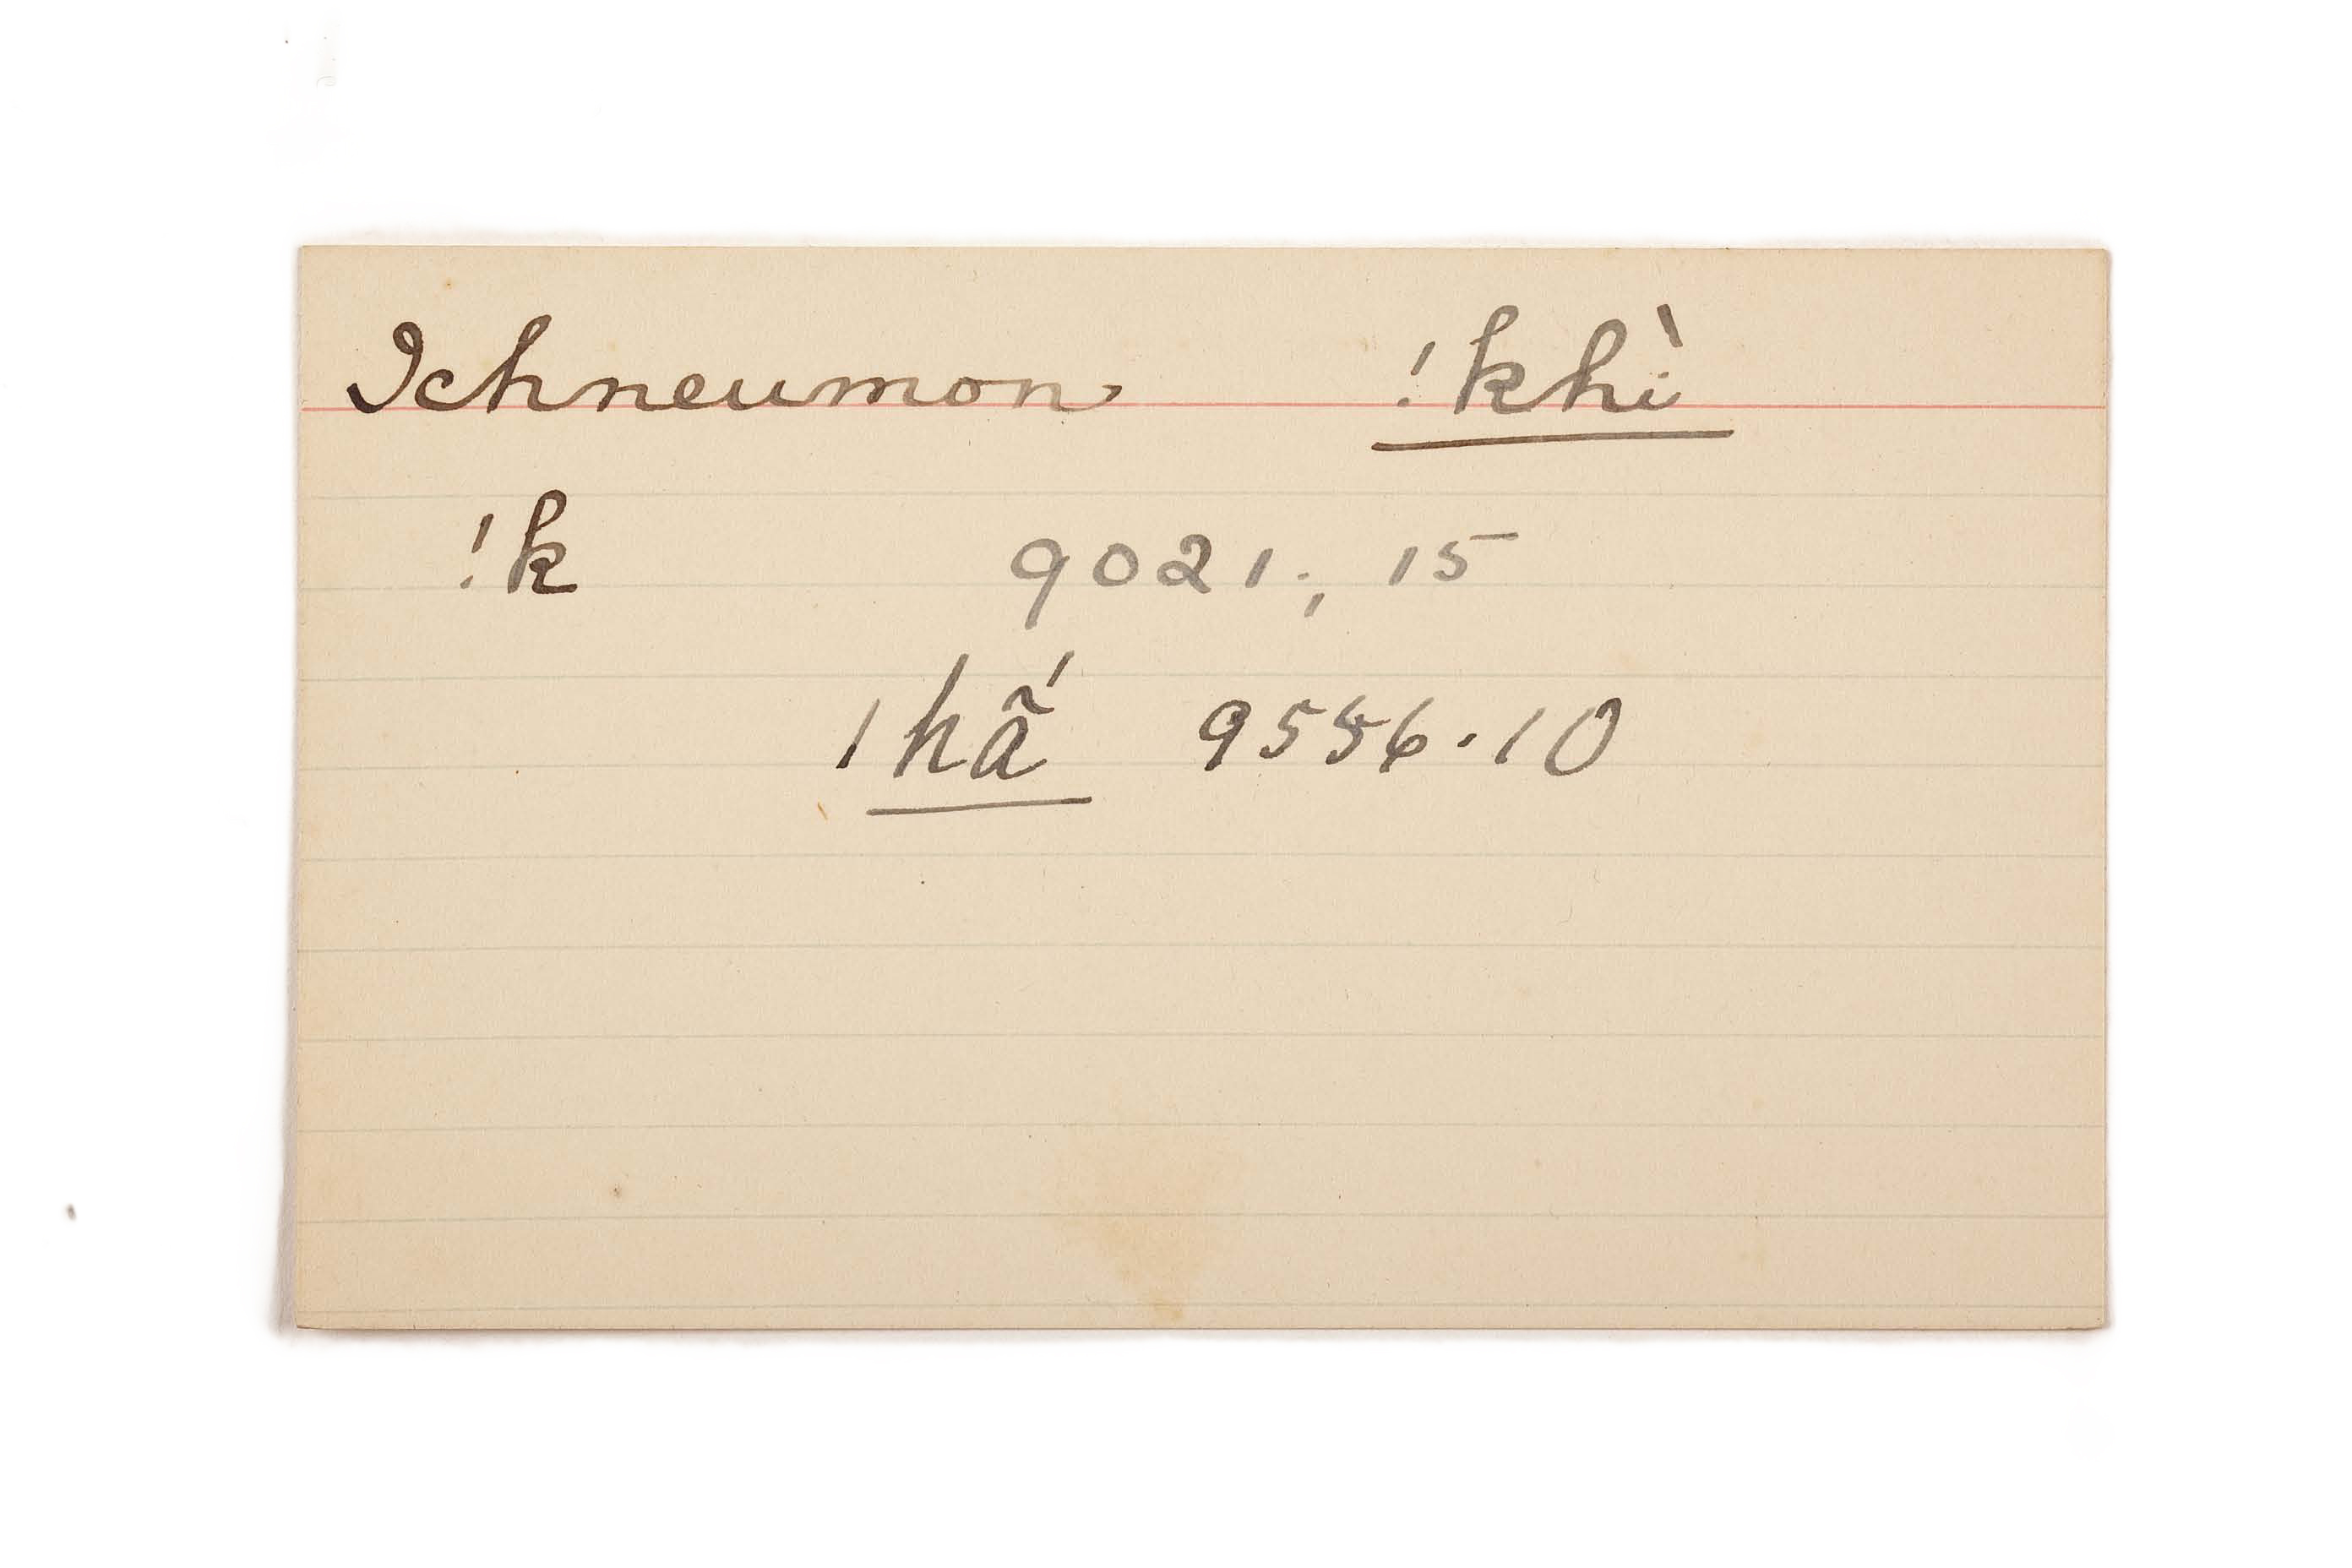 Ichneumon !khì
!k 9021; 15
|hã́ 9556.10